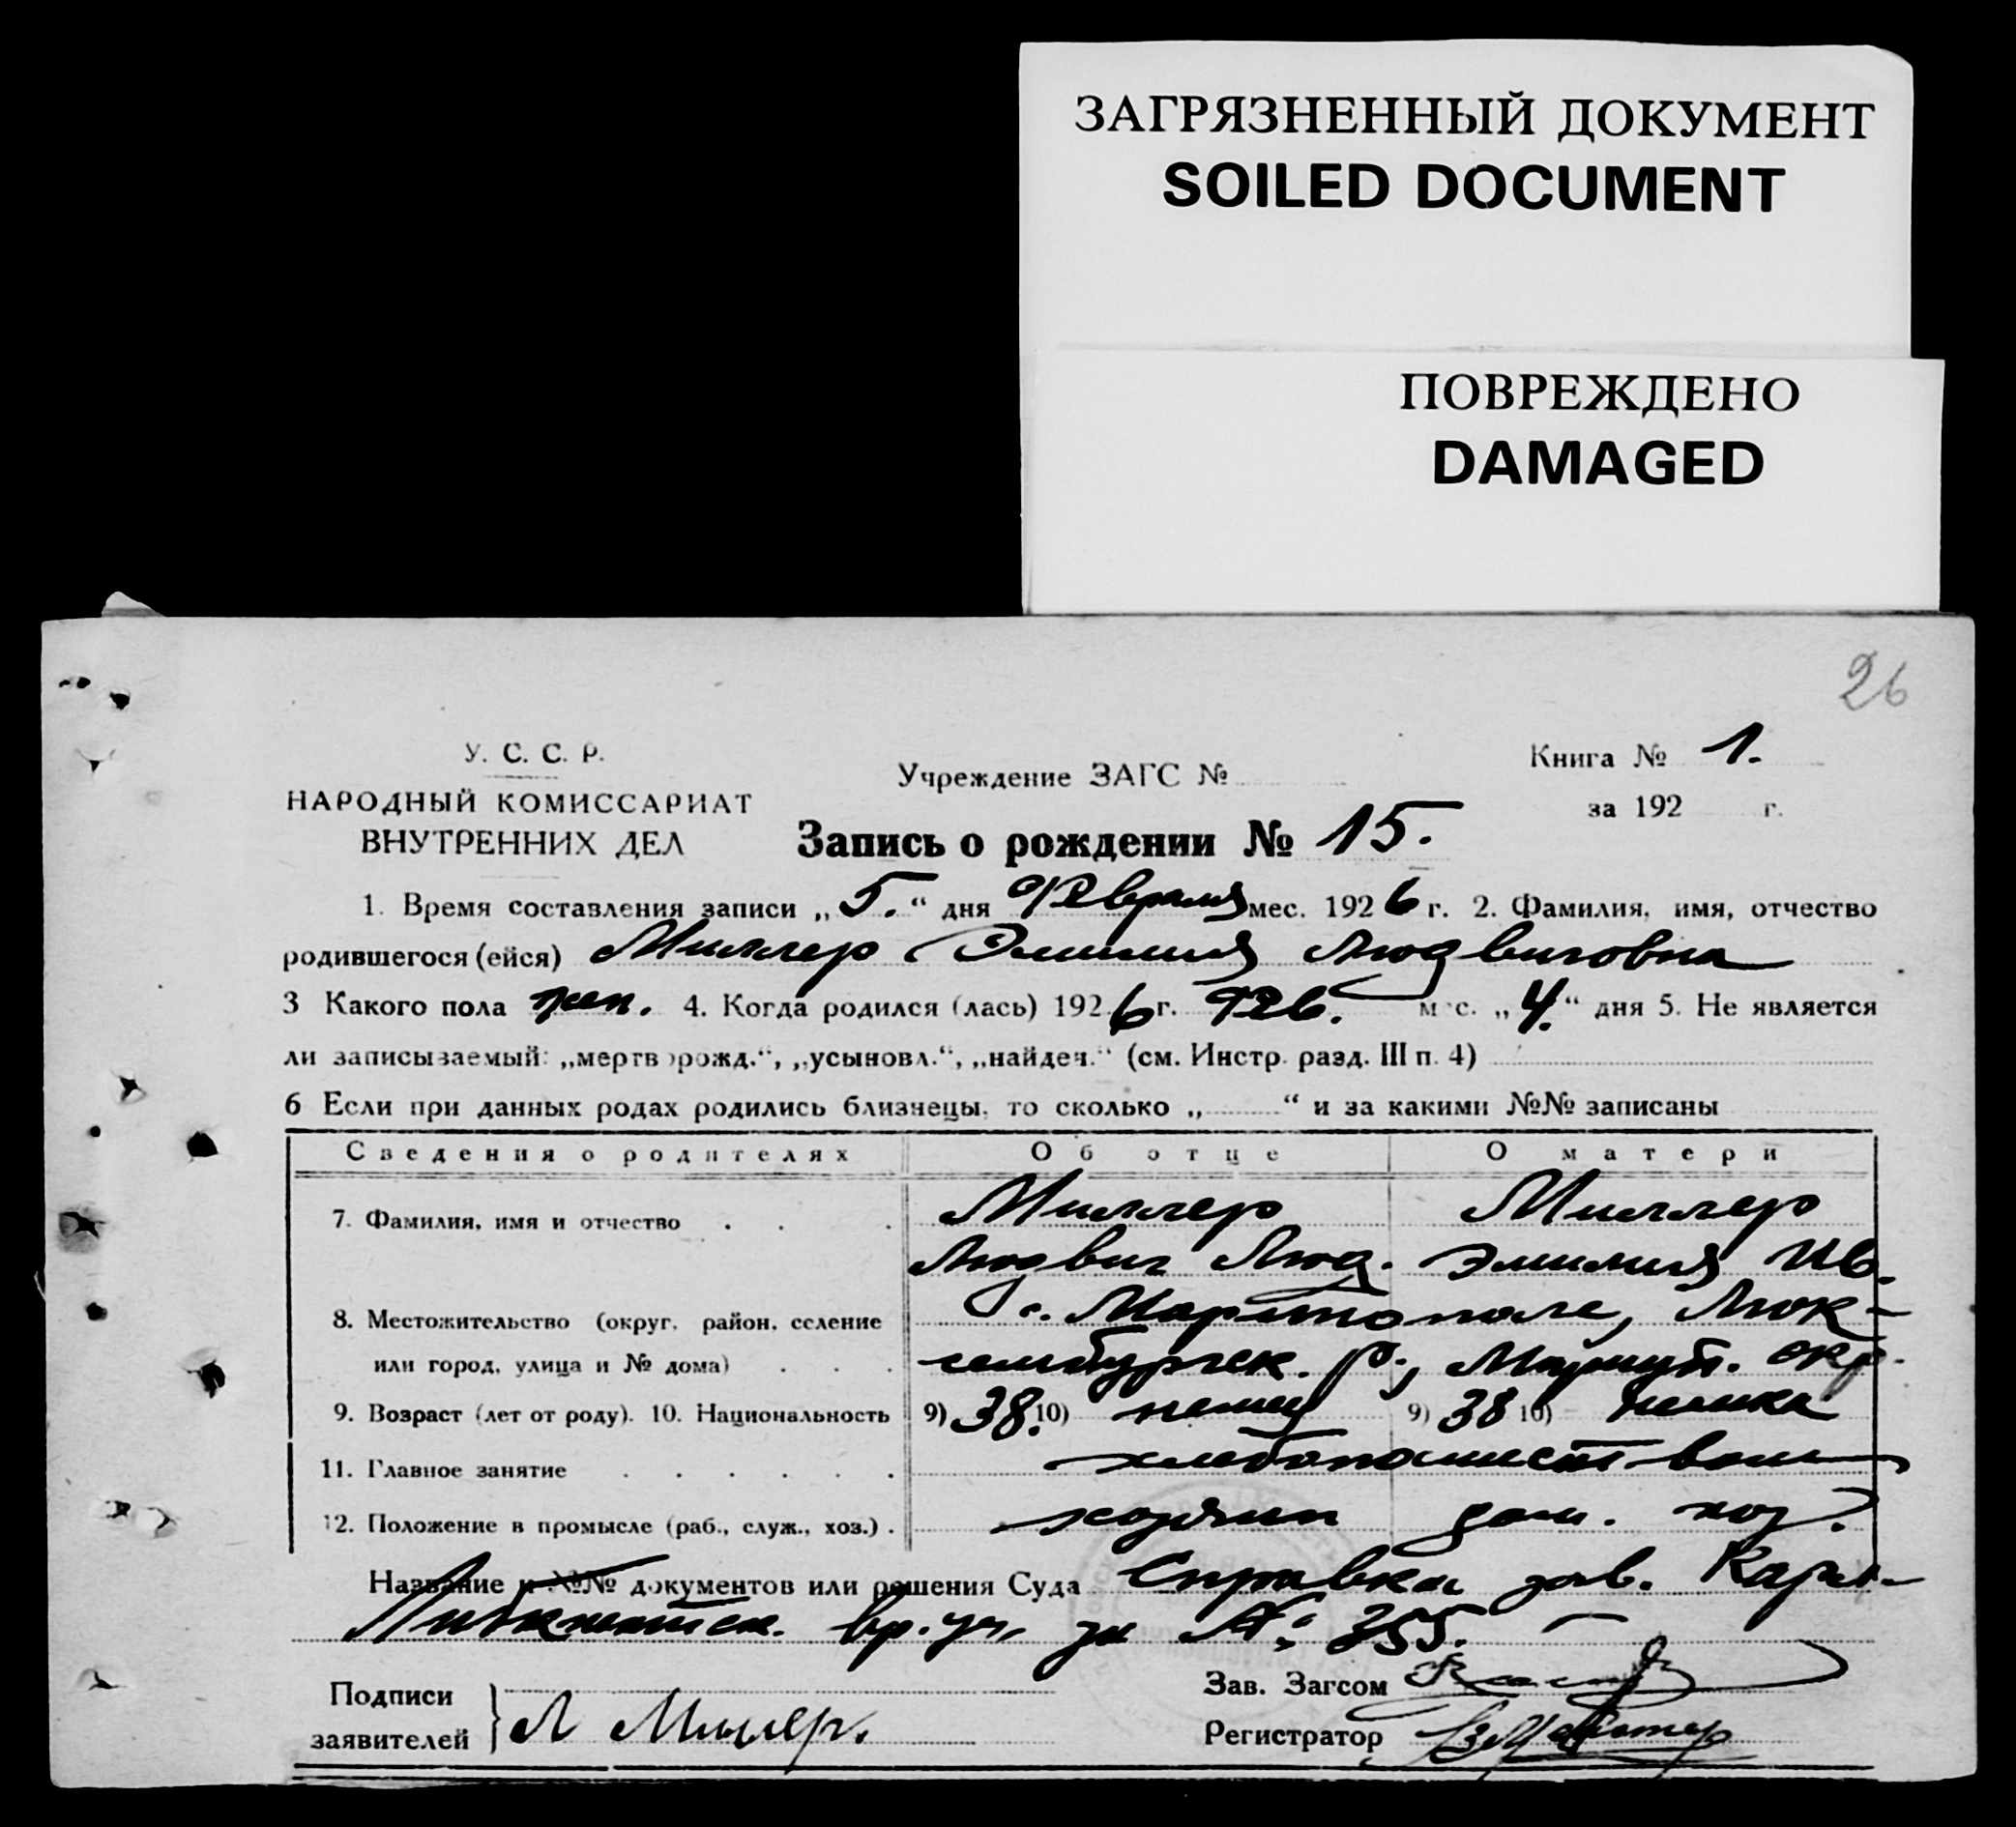 ЗАГРЯЗНЕННЫЙ ДОКУМЕНТ
SOILED DOCUMENT
ПОВРЕЖДЕНО
DAMAGED
26
У. С. С. Р.
НАРОДНЫЙ КОМИССАРИАТ
ВНУТРЕННИХ ДЕЛ
Учреждение ЗАГС №
Книга № 1.
за 192 г.
Запись о рождении № 15.
1. Время составления записи „5.“ дня февраля мес. 1926 г. 2. Фамилия, имя, отчество
родившегося (ейся) Миллер Эмилия Людвиговна
3 Какого пола жен. 4. Когда родился (лась) 1926 г. фев. мес. „4.“ дня 5. Не является
ли записываемый: „мертворожд.“, „усыновл.“, „найден.“ (см. Инстр. разд. III п. 4)
6 Если при данных родах родились близнецы, то сколько „ “ и за какими №№ записаны
Сведения о родителях Об отце О матери
7. Фамилия, имя и отчество . . . Миллер Миллер
Людвиг Люд. Эмилия Ив.
8. Местожительство (округ, район, селение с. Мариинополе, Люк-
или город, улица и № дома) . . . сембургск. р., Мариуп. окр.
9. Возраст (лет от роду). 10. Национальность 9) 38. 10) немец 9) 38 10) немка
11. Главное занятие . . . . . . хлебопашество
12. Положение в промысле (раб., служ., хоз.) . хозяин дом. хоз.
Название и №№ документов или решения Суда Справка зав. Карл-
Либкнехтск. вр. уч. за № 355.
Подписи
заявителей } Л Миллер.
Зав. Загсом
Регистратор